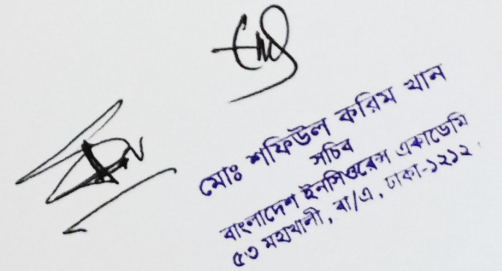 মোঃ শফিউল করিম খান
সচিব
বাংলাদেশ ইনসিওরেন্স একাডেমি
৫৩ মহাখালী, বা/এ, ঢাকা-১২১২